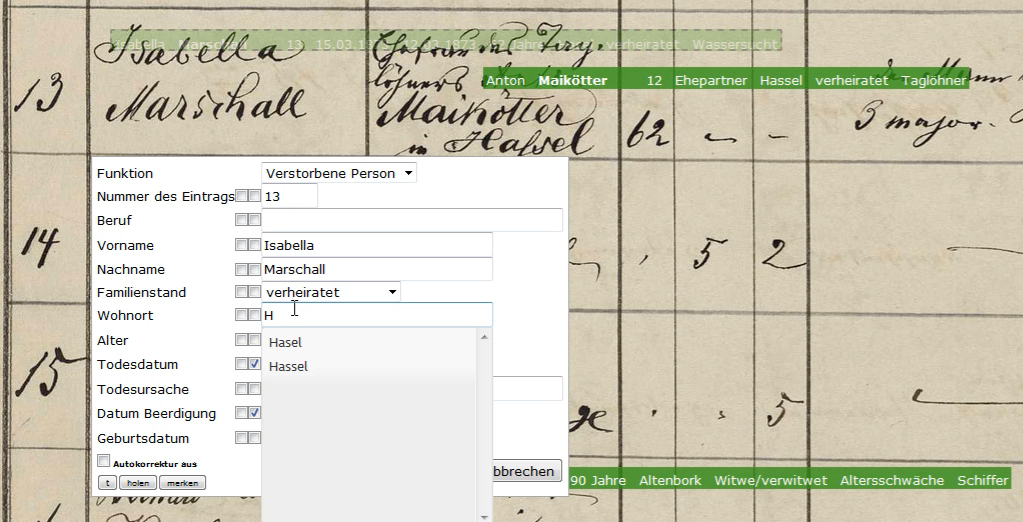 Isabella
Marschall
13
Ehefrau des Tag-
löhners
Maikötter
in Hassel
62 – –
3 major.
Isabella Marschall 13 15.03. 1873 verheiratet Wassersucht
Anton Maikötter 12 Ehepartner Hassel verheiratet Taglöhner
Funktion Verstorbene Person
Nummer des Eintrags 13
Beruf
Vorname Isabella
Nachname Marschall
Familienstand verheiratet
Wohnort H
Hasel
Hassel
Alter
Todesdatum
Todesursache
Datum Beerdigung
Geburtsdatum
Autokorrektur aus
t holen merken
bbrechen
14
5 2
15
5
90 Jahre Altenbork Witwe/verwitwet Altersschwäche Schiffer